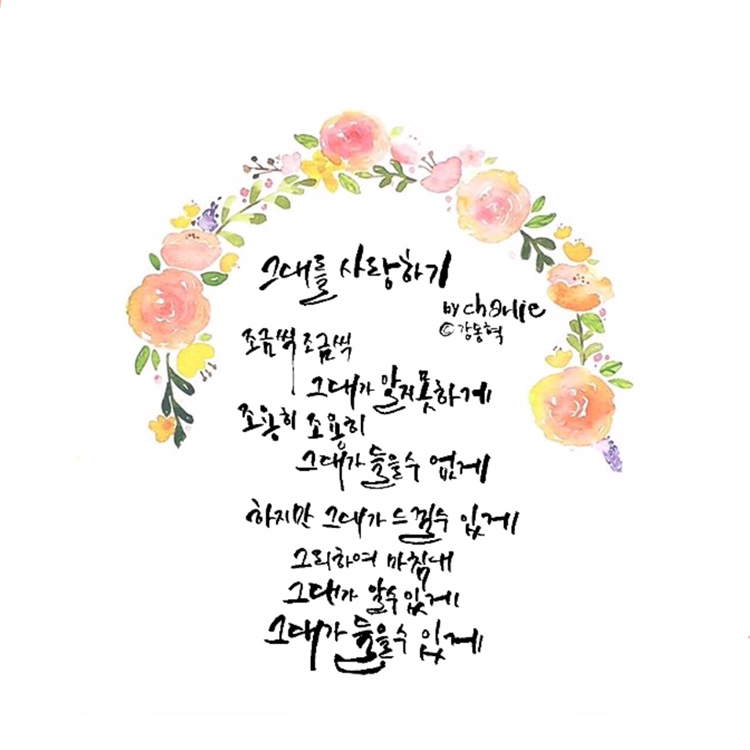 그대를 사랑하기
by charlie
©강동혁
조금씩 조금씩
그대가 알지 못하게
조용히 조용히
그대가 들을 수 없게
하지만 그대가 느낄 수 있게
그리하여 마침내
그대가 알 수 있게
그대가 들을 수 있게